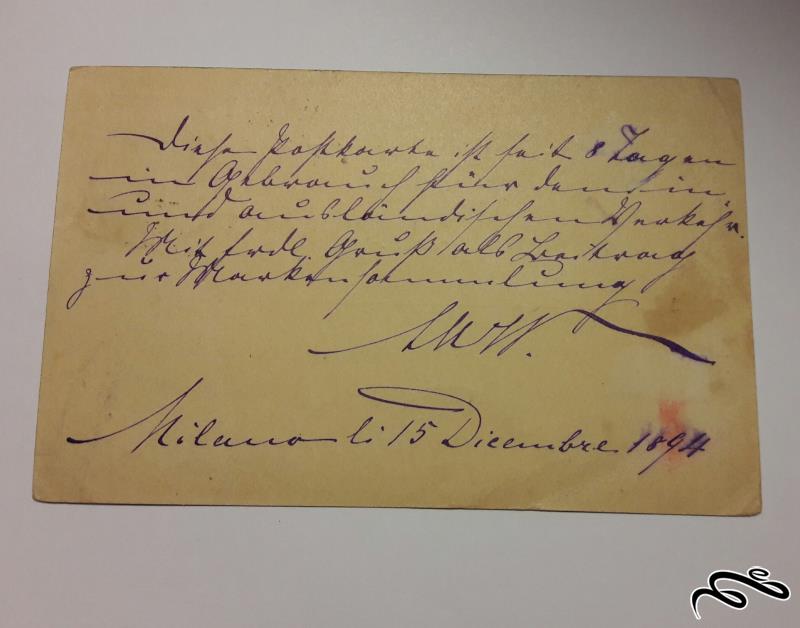 Diese Postkarte ist seit 8 Tagen
im Gebrauch für den in
und ausländischen Verkehr.
Mit frdl. Gruß als Beitrag
zur Markensammlung
Milano li 15 Dicembre 1894